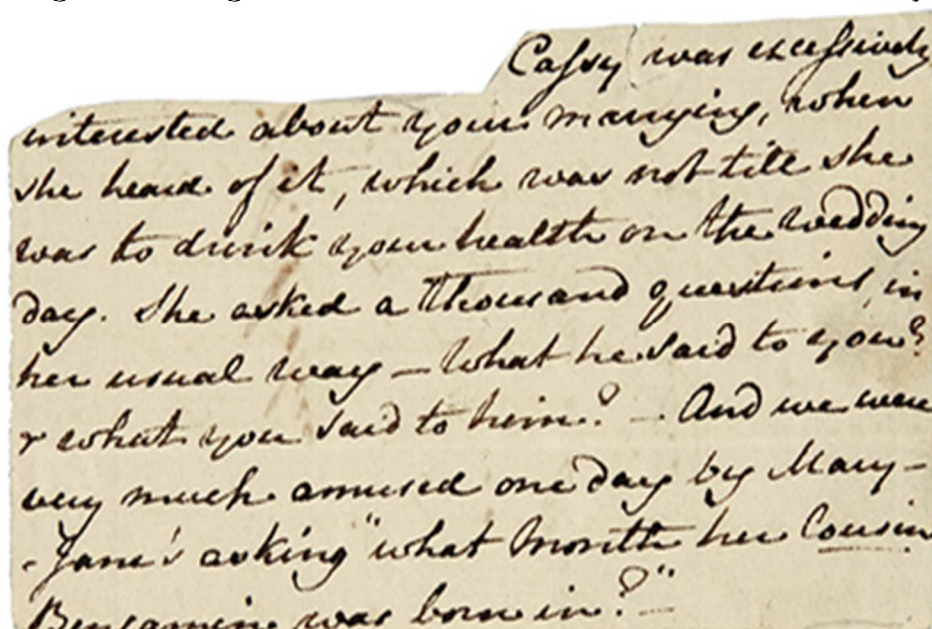 Cassy was excessively
interested about your marrying, when
she heard of it, which was not till she
was to drink your health on the wedding
day. She asked a thousand questions, in
her usual way — What he said to you?
& what you said to him? — And we were
very much amused one day by Mary-
-Jane's asking "what Month her Cousin
Benjamin was born in?"